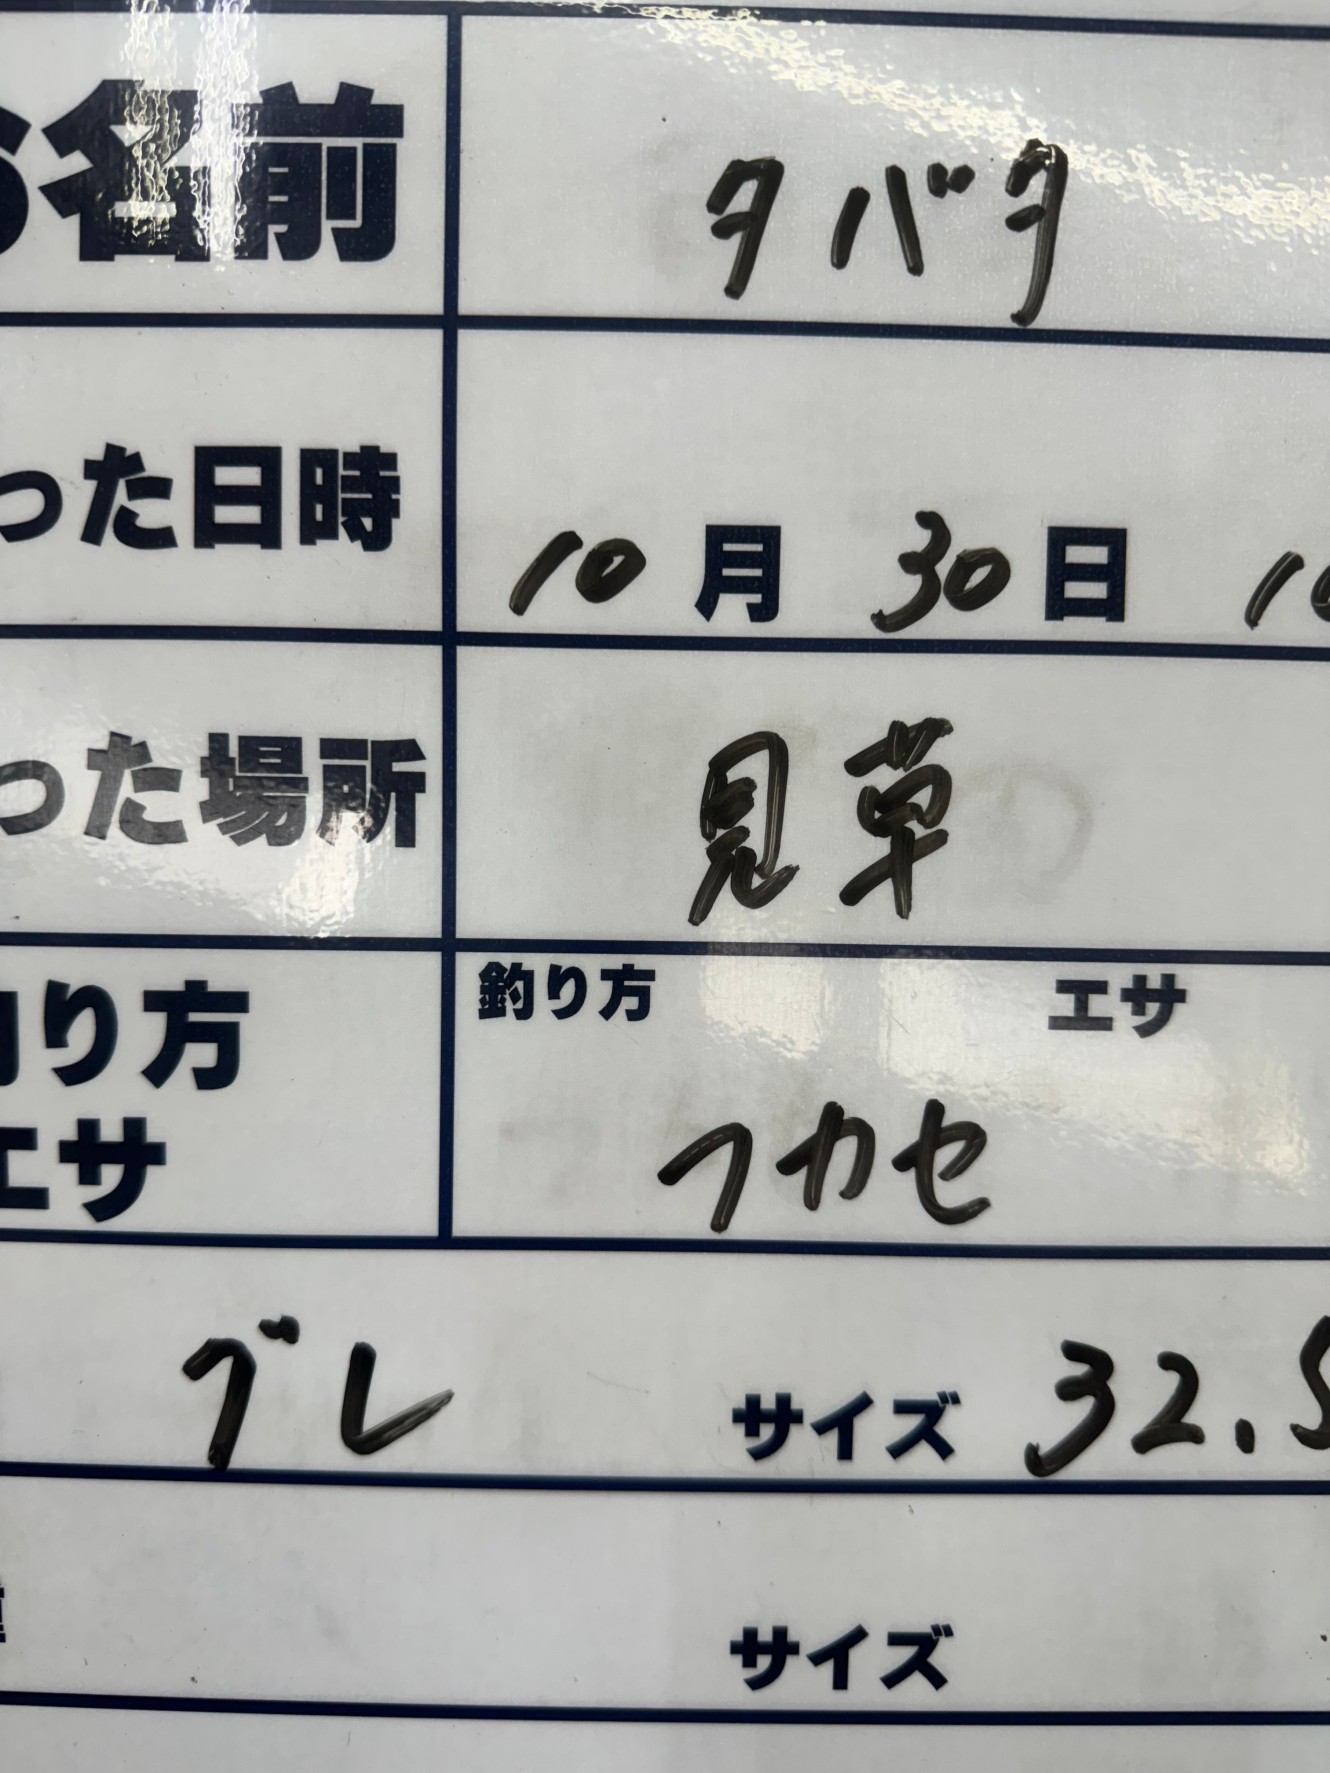 お名前 タバタ
った日時 10月30日
った場所 見草
釣り方 エサ
り方
エサ
フカセ
グレ サイズ 32.5
サイズ